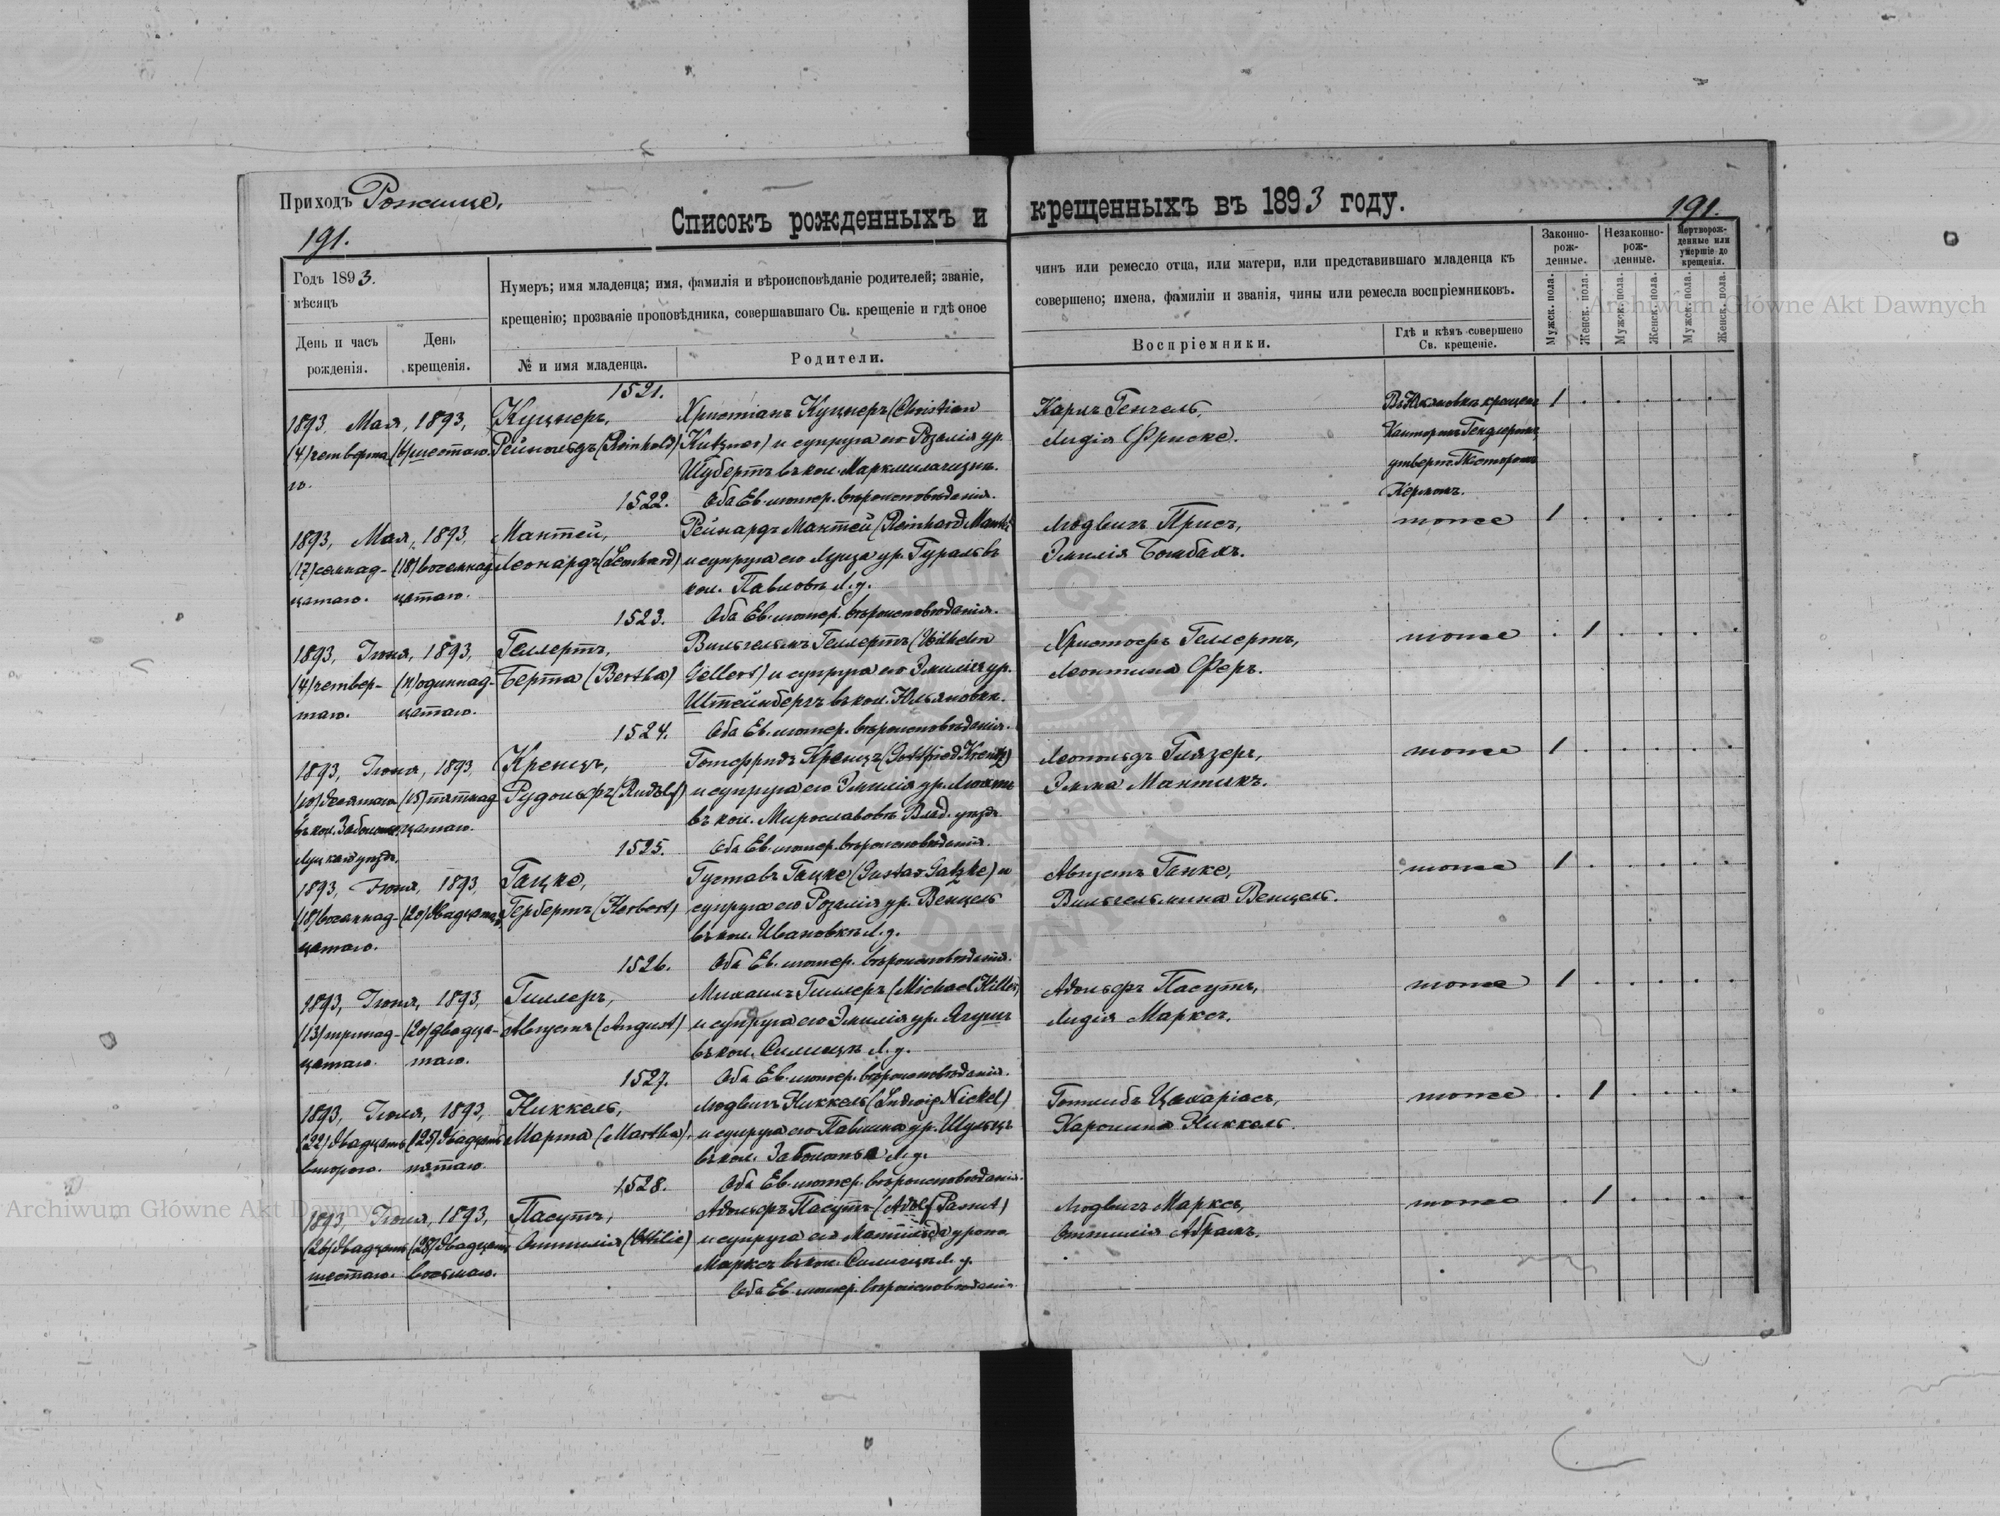 Приходъ Рожище.
Списокъ рожденныхъ и крещенныхъ въ 1893 году.
191.
191.
Годъ 1893.
мѣсяцъ
День и часъ рожденія.
День крещенія.
Нумеръ; имя младенца; имя, фамилія и вѣроисповѣданіе родителей; званіе,
крещенію; прозваніе проповѣдника, совершавшаго Св. крещеніе и гдѣ оное
№ и имя младенца.
Родители.
чинъ или ремесло отца, или матери, или представившаго младенца къ
совершено; имена, фамиліи и званія, чины или ремесла воспріемниковъ.
Воспріемники.
Гдѣ и кѣмъ совершено Св. крещеніе.
Законно-рож-денные.
Незаконно-рож-денные.
Мертворож-денные или умершіе до крещенія.
Мужск. пола.
Женск. пола.
Мужск. пола.
Женск. пола.
Мужск. пола.
Женск. пола.
Archiwum Główne Akt Dawnych
1521.
1893, Мая, 1893, Куцнеръ, Христіанъ Куцнеръ (Christian Карлъ Генчель, крещенъ 1
(4) четверта (6) шестаго. Рейнольдъ (Reinhold) Kutzner) и супруга его Розалія ур. Лидія Фриске. Канторомъ
го. Шубертъ въ кол. утверж. Пасторомъ
1522. Оба Ев. лютер. вѣроисповѣданія. Керномъ.
1893, Мая, 1893, Мантей, Рейнардъ Мантей (Reinhard Людвигъ Прись, тоже 1
(17) семнад- (18) восемнад Леонардъ (Leonhard) и супруга его Луиза ур. Эмилія Бомбахъ.
цатаго. цатаго. кол. Павловкѣ Л. у.
1523. Оба Ев. лютер. вѣроисповѣданія.
1893, Іюня, 1893, Геллертъ, Вильгельмъ Геллертъ (Wilhelm Христофъ Геллертъ, тоже 1
(4) четвер- (11) одиннад- Берта (Bertha) Gellert) и супруга его Эмилія ур. Леонтина Феръ.
таго. цатаго. Штейнбергъ въ кол. Юльяновкѣ.
1524. Оба Ев. лютер. вѣроисповѣданія.
1893, Іюня, 1893, Кренцъ, Готфридъ Кренцъ (Gottfried Krentz) Леопольдъ Глязеръ, тоже 1
(10) десятаго (15) пятнад Рудольфъ (Rudolf) и супруга его Эмилія ур. Эмма Мантикъ.
въ кол. цатаго. въ кол. Мирославовкѣ Влад. уѣзда
Луцкаго уѣзда. 1525. Оба Ев. лютер. вѣроисповѣданія.
1893, Іюня, 1893, Гацке, Густавъ Гацке (Gustav Gatzke) и Августъ Ганке, тоже 1
(18) восемнад- (20) двадцатаго Гербертъ (Herbert) супруга его Розалія ур. Венцель Вильгельмина Венцель.
цатаго. въ кол. Ивановкѣ Л. у.
1526. Оба Ев. лютер. вѣроисповѣданія.
1893, Іюня, 1893, Гиллеръ, Михаилъ Гиллеръ (Michael Hiller) Адольфъ Пасутъ, тоже 1
(13) тринад- (20) двадца- Августъ (August) и супруга его Эмилія ур. Ягушъ Лидія Марксъ.
цатаго. таго. въ кол. Силиецъ Л. у.
1527. Оба Ев. лютер. вѣроисповѣданія.
1893, Іюля, 1893, Никкель, Людвигъ Никкель (Ludwig Nickel) Готлибъ Цахаріасъ, тоже 1
(22) двадцать (25) двадцать Марта (Martha) и супруга его Павлина ур. Шульцъ Каролина Никкель.
второго. пятаго. въ кол. Заболотье Л. у.
1528. Оба Ев. лютер. вѣроисповѣданія.
1893, Іюня, 1893, Пасутъ, Адольфъ Пасутъ (Adolf Pasut) Людвигъ Марксъ, тоже 1
(26) двадцать (28) двадцать Оттилія (Ottilie) и супруга его Матильда урожд. Оттилія Абрамъ.
шестаго. восьмаго. Марксъ въ кол. Силиецъ Л. у.
Оба Ев. лютер. вѣроисповѣданія.
Archiwum Główne Akt Dawnych
Archiwum Główne Akt Dawnych